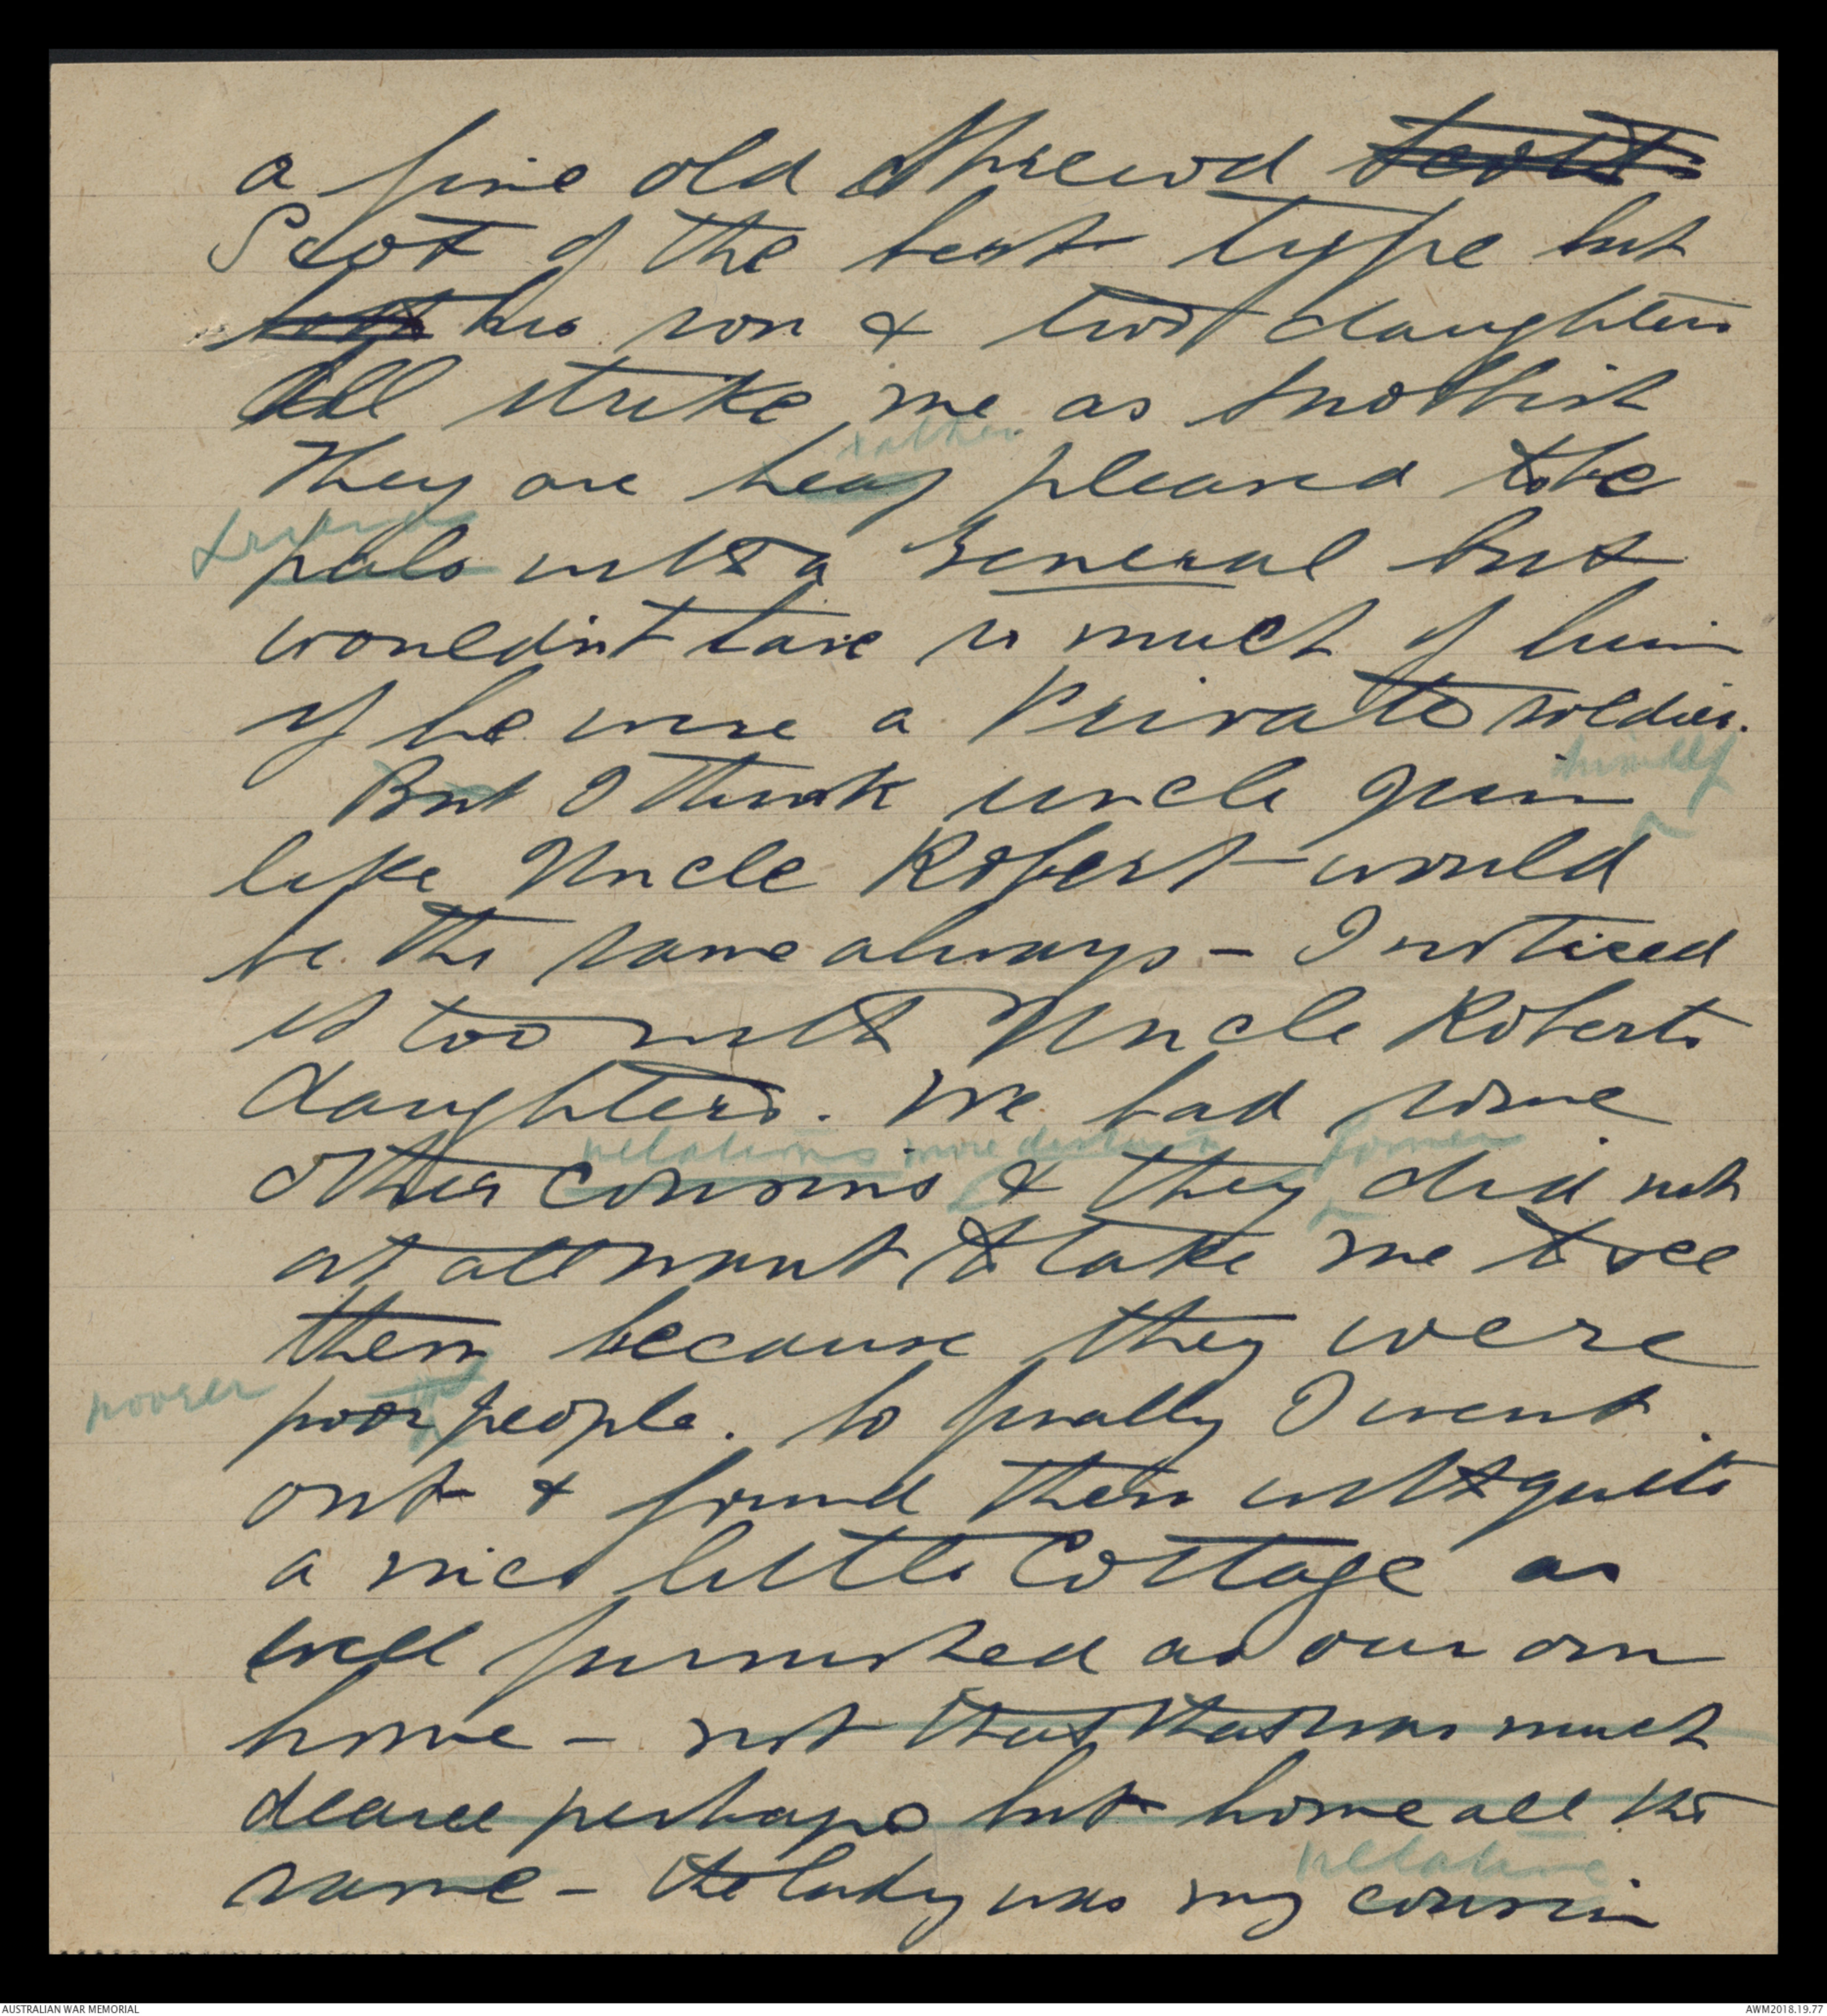 a fine old shrewd Scotts
Scot of the best type but
his son & two daughters
all strike me as snobbish
rather
They are heap pleased to be
friends
pals with a General but
wouldn't take so much of him
if he were a Private soldier.
himself
But I think uncle Jim
like Uncle Robert would
be the same always - I noticed
it too with Uncle Roberts
daughters. We had some
relations more distant former
other cousins & they did not
at all want to take me to see
them because they were
poorer
poor people. So finally I went
out & found them with quite
a nice little Cottage as
well furnished as our own
home - not that that was much
dearee perhaps but home all the
relative
same - the lady was my cousin
AUSTRALIAN WAR MEMORIAL
AWM2018.19.77